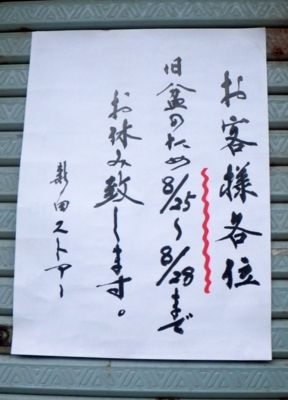 お客様各位
旧盆のため8/25〜8/28まで
お休み致します。
新田ストアー